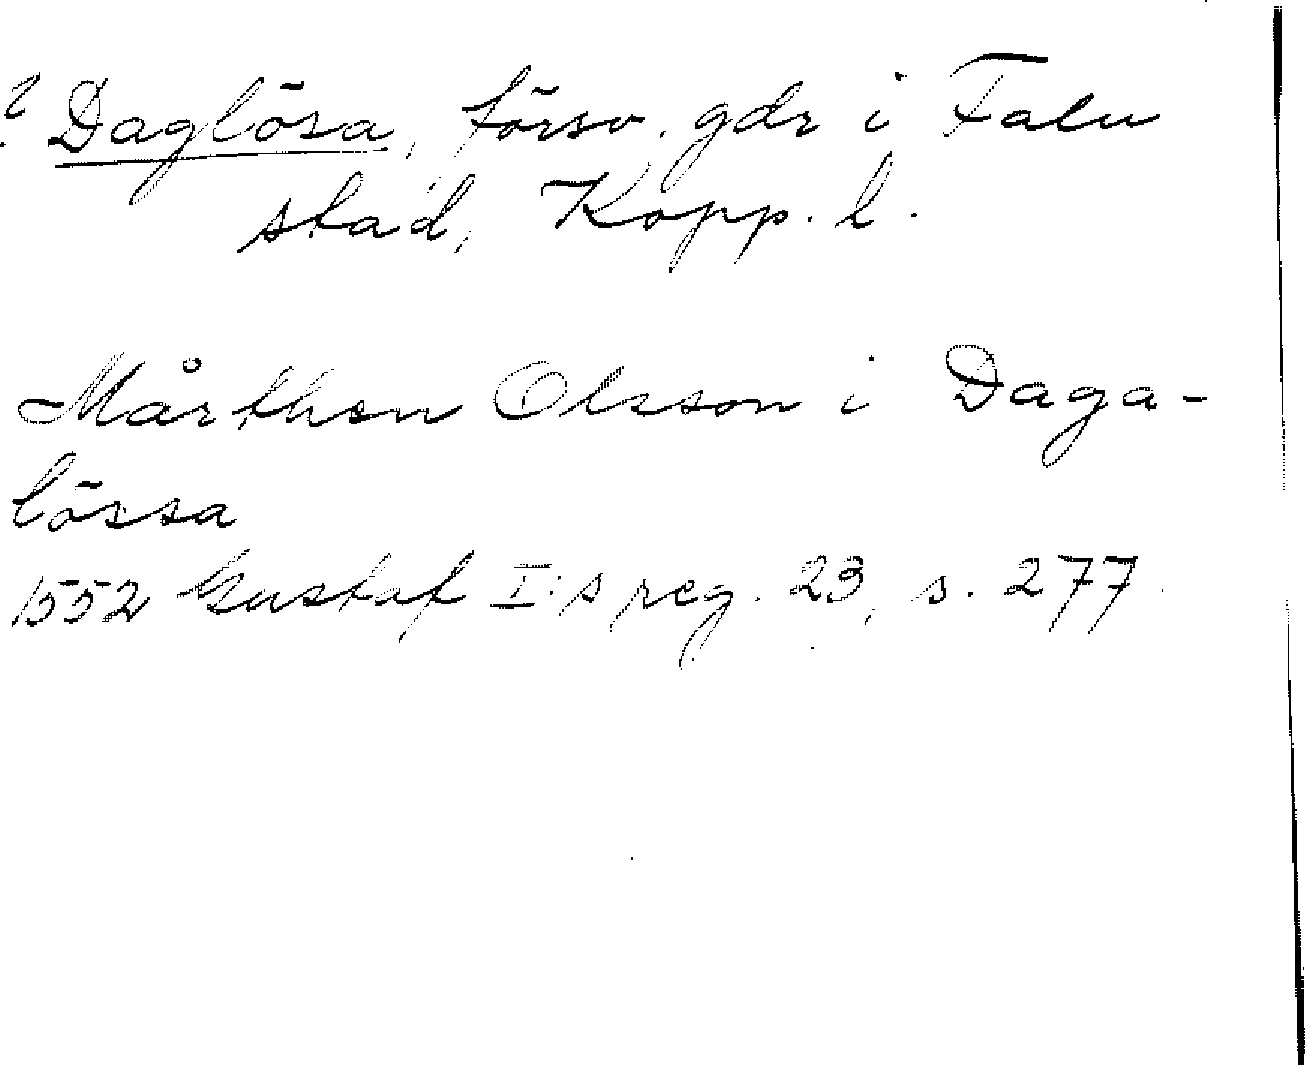 ? Daglösa, försv. gdr i Falu
stad, Kopp. l.
Mårthen Olsson i Daga-
lössa
1552 Gustaf I:s reg. 23, s. 277.